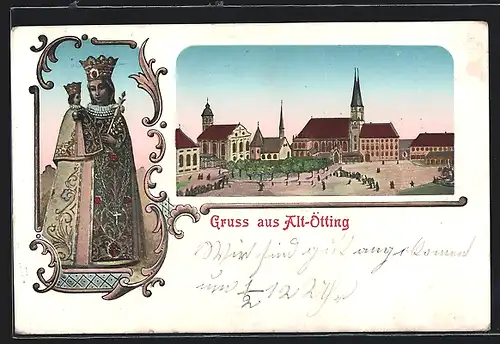 Gruss aus Alt-Ötting
Wir sind gut angekomen
um 1/2 12 Uhr